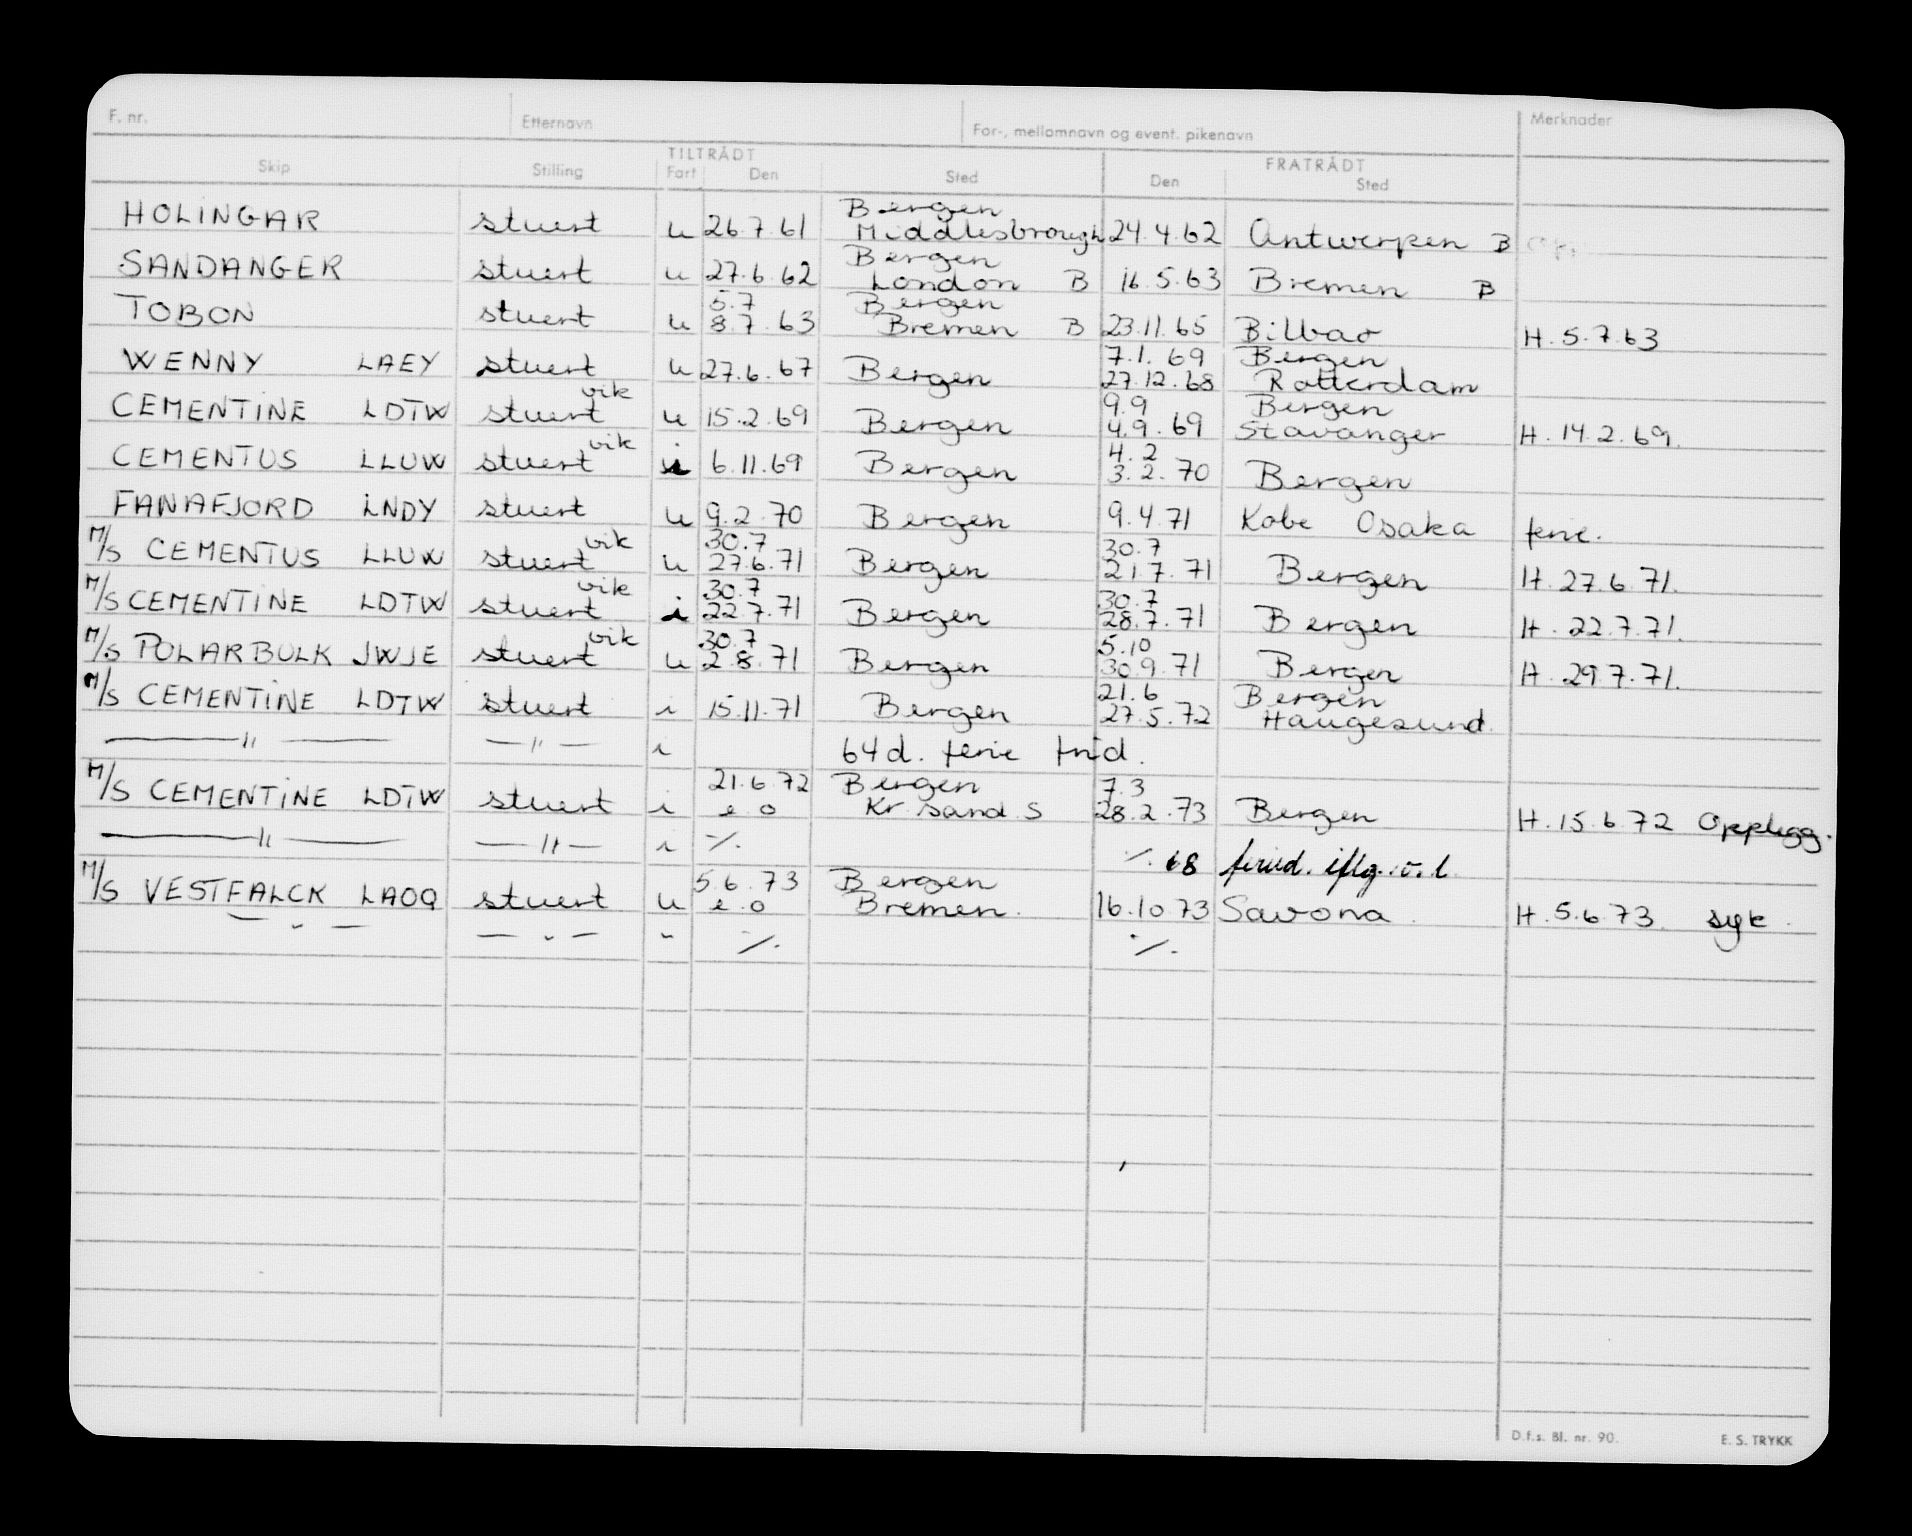 F. nr. Etternavn For-, mellomnavn og event. pikenavn Merknader
TILTRÅDT FRATRÅDT
Skip Stilling Fart Den Sted Den Sted
Bergen
HOLINGAR stuert u 26.7.61 Middlesbrough 24.4.62 Antwerpen B
Bergen
SANDANGER stuert u 27.6.62 London B 16.5.63 Bremen B
5.7 Bergen
TOBON stuert u 8.7.63 Bremen B 23.11.65 Bilbao H. 5.7.63
7.1.69 Bergen
WENNY LAEY stuert u 27.6.67 Bergen 27.12.68 Rotterdam
vik 9.9 Bergen
CEMENTINE LDTW stuert u 15.2.69 Bergen 4.9.69 Stavanger H. 14.2.69.
vik 4.2
CEMENTUS LLUW stuert i 6.11.69 Bergen 3.2.70 Bergen
FANAFJORD LNDY stuert u 9.2.70 Bergen 9.4.71 Kobe Osaka ferie.
vik 30.7 30.7
M/S CEMENTUS LLUW stuert u 27.6.71 Bergen 21.7.71 Bergen H. 27.6.71.
vik 30.7 30.7
M/S CEMENTINE LDTW stuert i 22.7.71 Bergen 28.7.71 Bergen H. 22.7.71.
vik 30.7 5.10
M/S POLARBULK JWJE stuert u 2.8.71 Bergen 30.9.71 Bergen H. 29.7.71.
21.6 Bergen
M/S CEMENTINE LDTW stuert i 15.11.71 Bergen 27.5.72 Haugesund.
—〃— —〃— i 64d. ferie frid.
21.6.72 Bergen 7.3
M/S CEMENTINE LDTW stuert i e.o Kr.sand S 28.2.73 Bergen H. 15.6.72 Opplegg.
—〃— —〃— i ⁒ ⁒ 68 frid. iflg.
5.6.73 Bergen
M/S VESTFALCK LAOQ stuert u e.o Bremen. 16.10.73 Savona. H. 5.6.73. syk.
— " — — " — " ⁒ ⁒
D.f.s. Bl. nr. 90. E. S. TRYKK